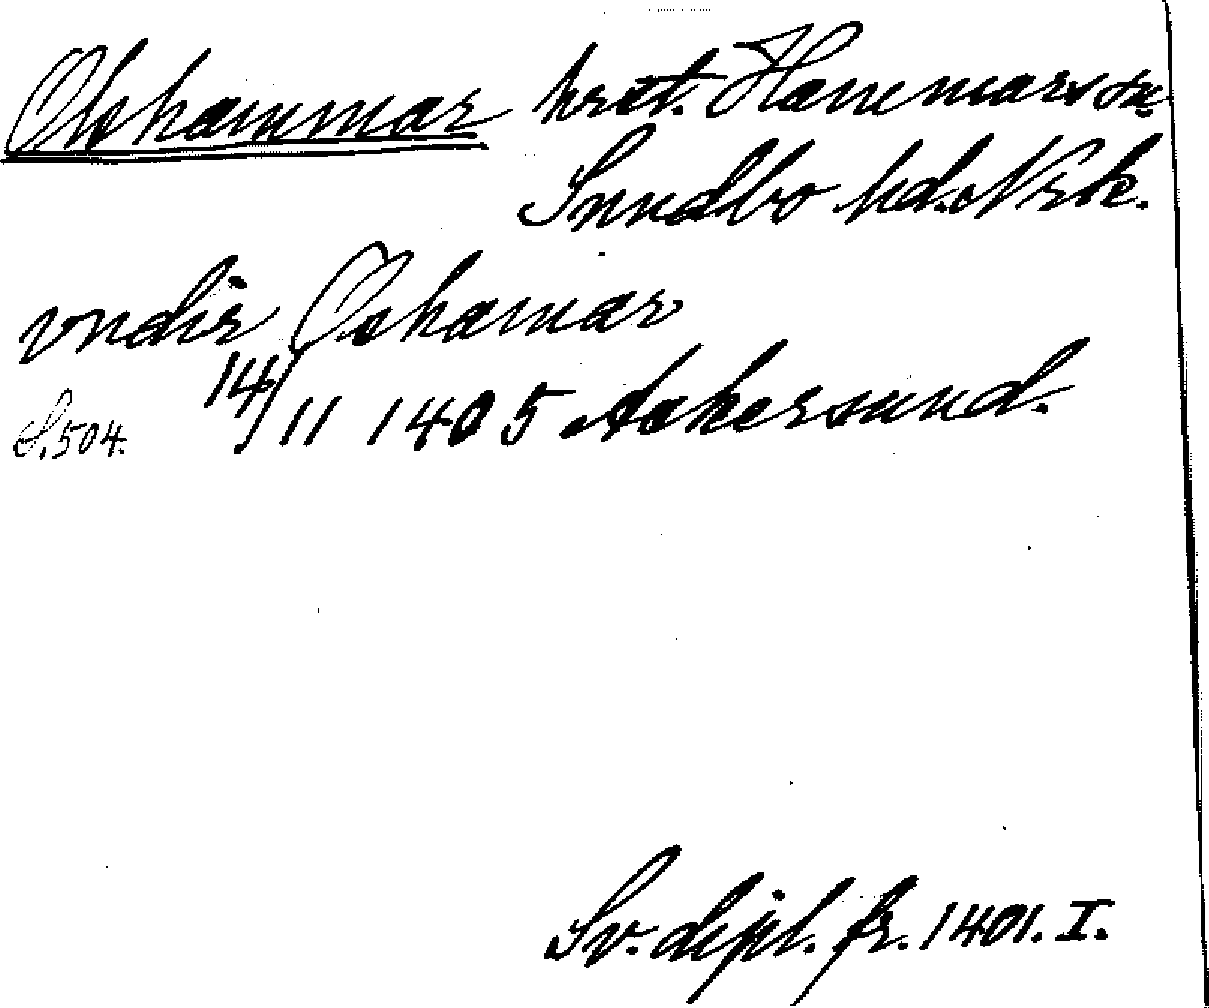 Olshammar hrgt. Hammars sn.
Sundbo hd. Nrk.
vndir Oshamar
14/11 1405 Askersund.
S. 504.
Sv. dipl. fr. 1401. I.